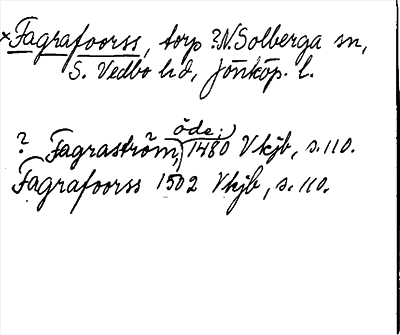 ×Fagrafoorss, torp ?N. Solberga sn,
S. Vedbo hd, Jönköp. l.
? Fagraström, öde; 1480 Vkjb, s. 110.
Fagrafoorss 1502 Vkjb, s. 110.